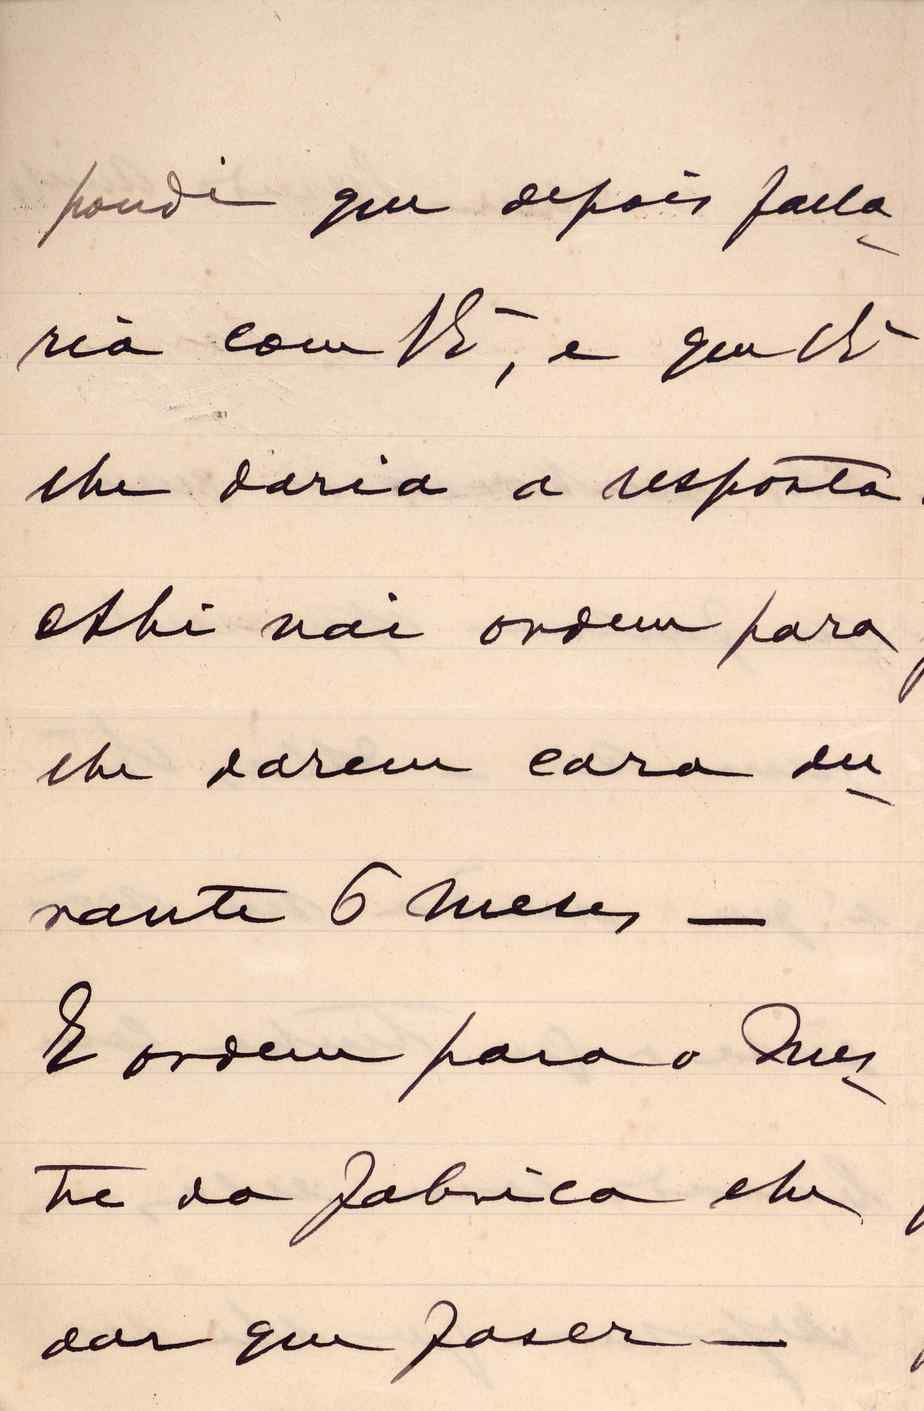 pondi que depois falla-
ria com VE, e que VE
lhe daria a resposta.
Ahi vai ordem para
lhe darem casa du-
rante 6 meses —
E ordem para o Mes-
tre da fabrica lhe
dar que faser —